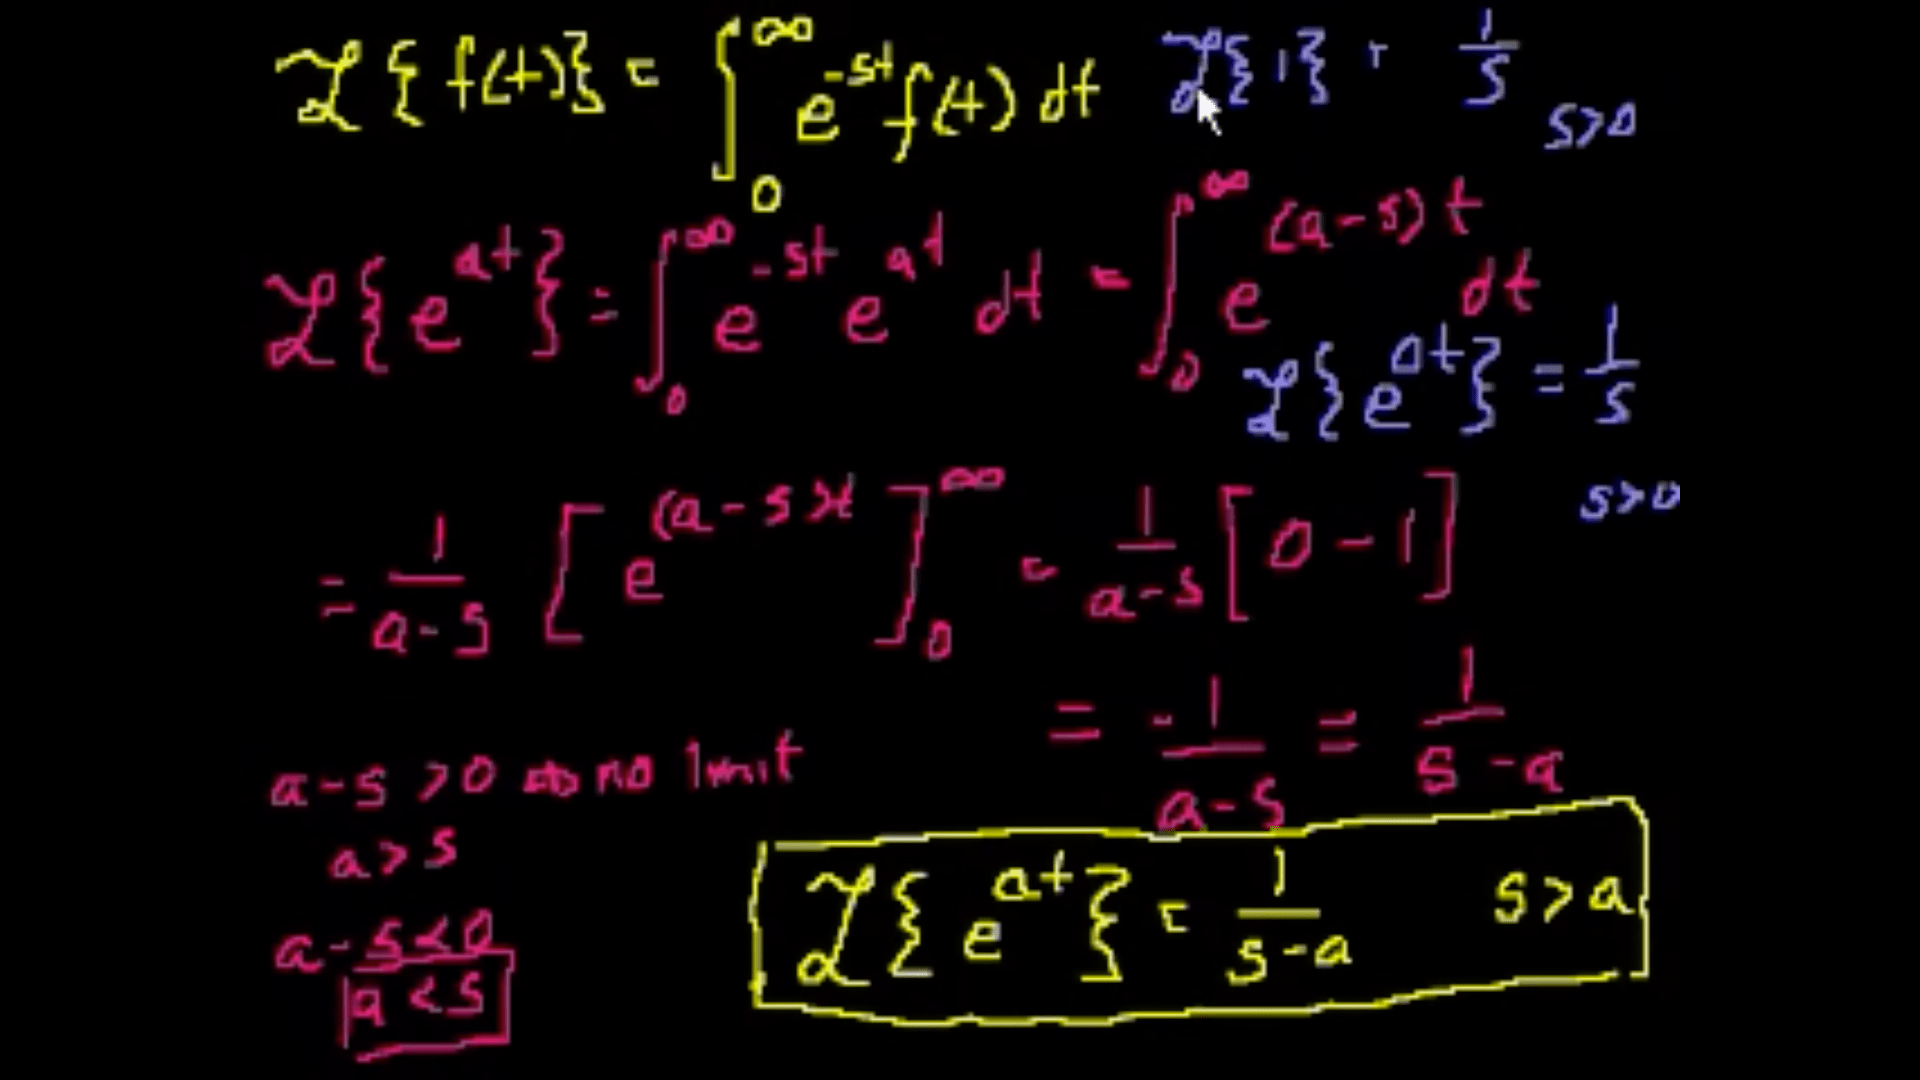 ℒ{f(t)} = ∫₀^∞ e^{-st} f(t) dt
ℒ{1} = 1/s s>0
ℒ{e^{at}} = ∫₀^∞ e^{-st} e^{at} dt = ∫₀^∞ e^{(a-s)t} dt
ℒ{e^{0t}} = 1/s
s>0
= 1/(a-s) [e^{(a-s)t}]₀^∞ = 1/(a-s) [0-1]
= -1/(a-s) = 1/(s-a)
a-s>0 ⇒ no limit
a>s
a-s<0
a<s
ℒ{e^{at}} = 1/(s-a) s>a